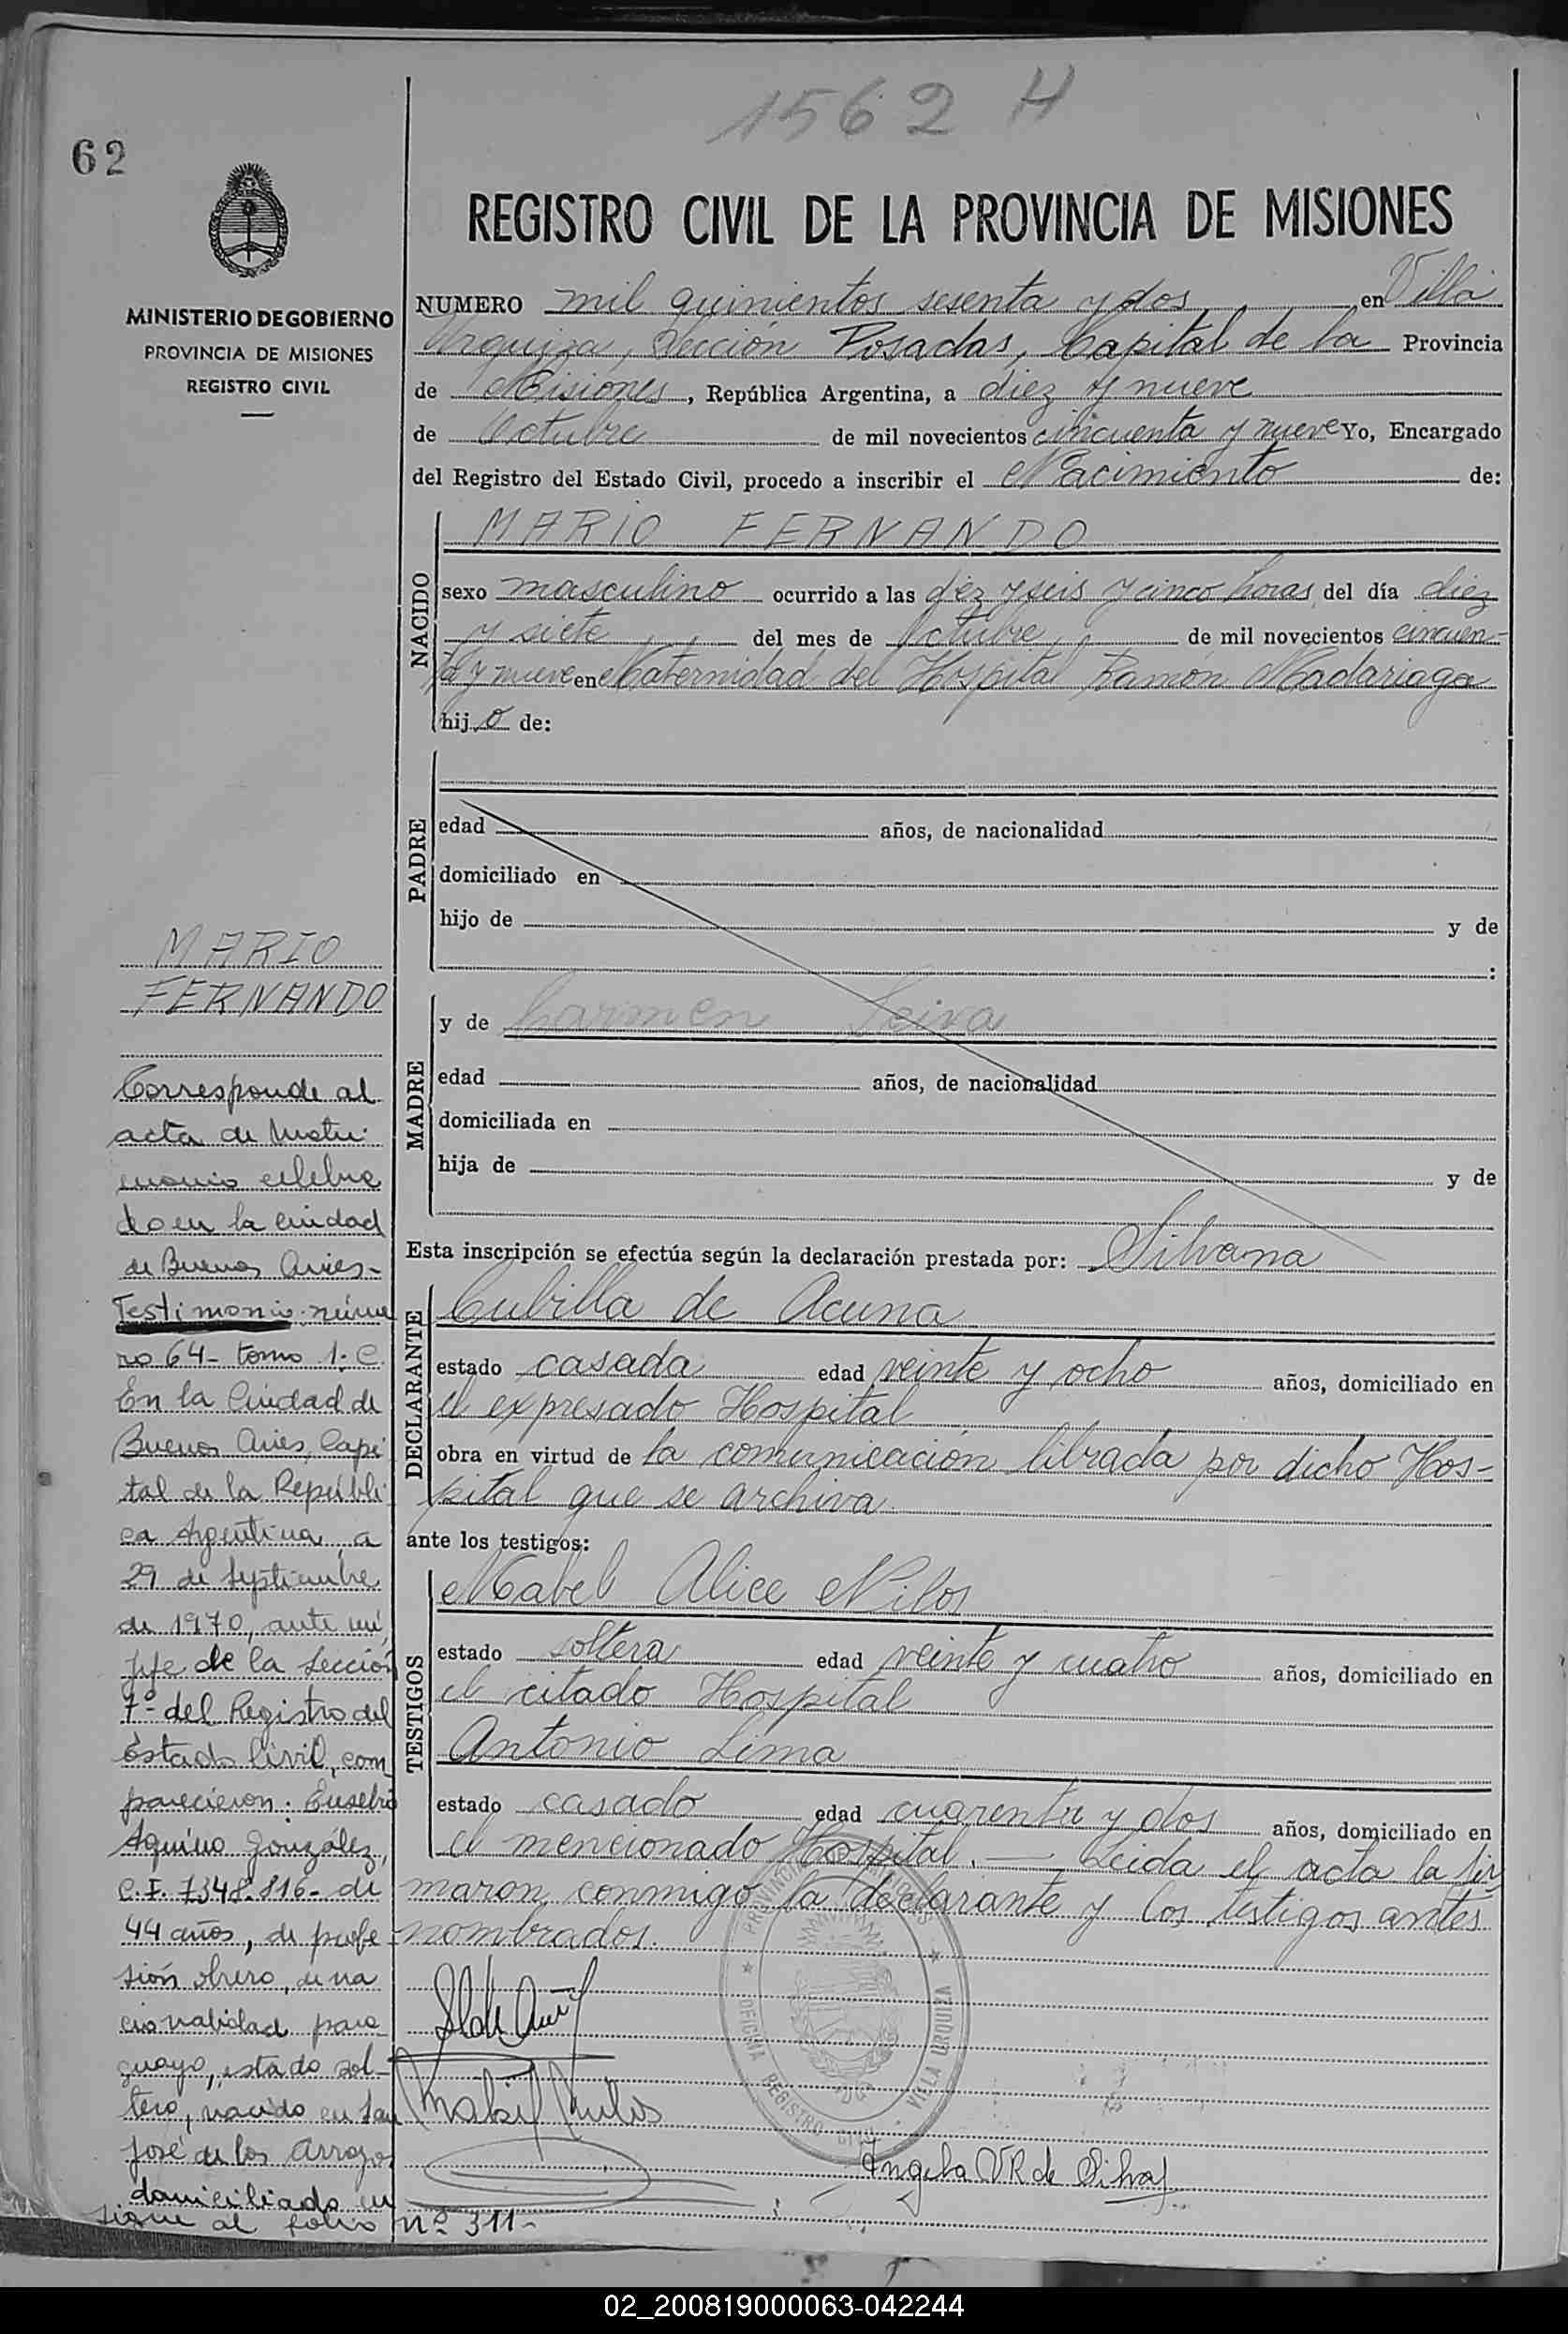 1562 H
62
REGISTRO CIVIL DE LA PROVINCIA DE MISIONES
MINISTERIO DE GOBIERNO
PROVINCIA DE MISIONES
REGISTRO CIVIL
NUMERO mil quinientos sesenta y dos en Villa
Urquiza, Sección Posadas, Capital de la Provincia
de Misiones, República Argentina, a diez y nueve
de Octubre de mil novecientos cincuenta y nueve Yo, Encargado
del Registro del Estado Civil, procedo a inscribir el Nacimiento de:
NACIDO
MARIO FERNANDO
sexo masculino ocurrido a las diez y seis y cinco horas del día diez
y siete del mes de Octubre de mil novecientos cincuen-
ta y nueve en Maternidad del Hospital Ramón Madariaga
hijo de:
PADRE
edad años, de nacionalidad
domiciliado en
hijo de y de
:
MADRE
y de Carmen Leiva
edad años, de nacionalidad
domiciliada en
hija de y de
Esta inscripción se efectúa según la declaración prestada por: Silvana
DECLARANTE
Cubilla de Acuna
estado casada edad veinte y ocho años, domiciliado en
el expresado Hospital
obra en virtud de la comunicación librada por dicho Hos-
pital que se archiva
ante los testigos:
TESTIGOS
Mabel Alice Nilos
estado soltera edad veinte y cuatro años, domiciliado en
el citado Hospital
Antonio Lima
estado casado edad cuarenta y dos años, domiciliado en
el mencionado Hospital. — Leida el acta la fir
maron conmigo la declarante y los testigos antes
nombrados.
PROVINCIA DE MISIONES
OFICINA REGISTRO CIVIL
VILLA URQUIZA
Angela V R de Silva
MARIO
FERNANDO
Corresponde al
acta de Matri
monio celebra
do en la ciudad
de Buenos Aires-
Testimonio núme
ro 64- tomo 1: C.
En la Ciudad de
Buenos Aires, Capi
tal de la Repúbli
ca Argentina, a
29 de Septiembre
de 1970, ante mí,
jefe de la Sección
7ª del Registro del
Estado Civil, com
parecieron: Eusebio
Aquino González,
C.I. 7.348.816- de
44 años, de profe
sión obrero, de na
cionalidad para
guayo, estado sol-
tero, nacido en San
José de los Arroyos
domiciliado en
sigue al folio nº 311-
02_200819000063-042244